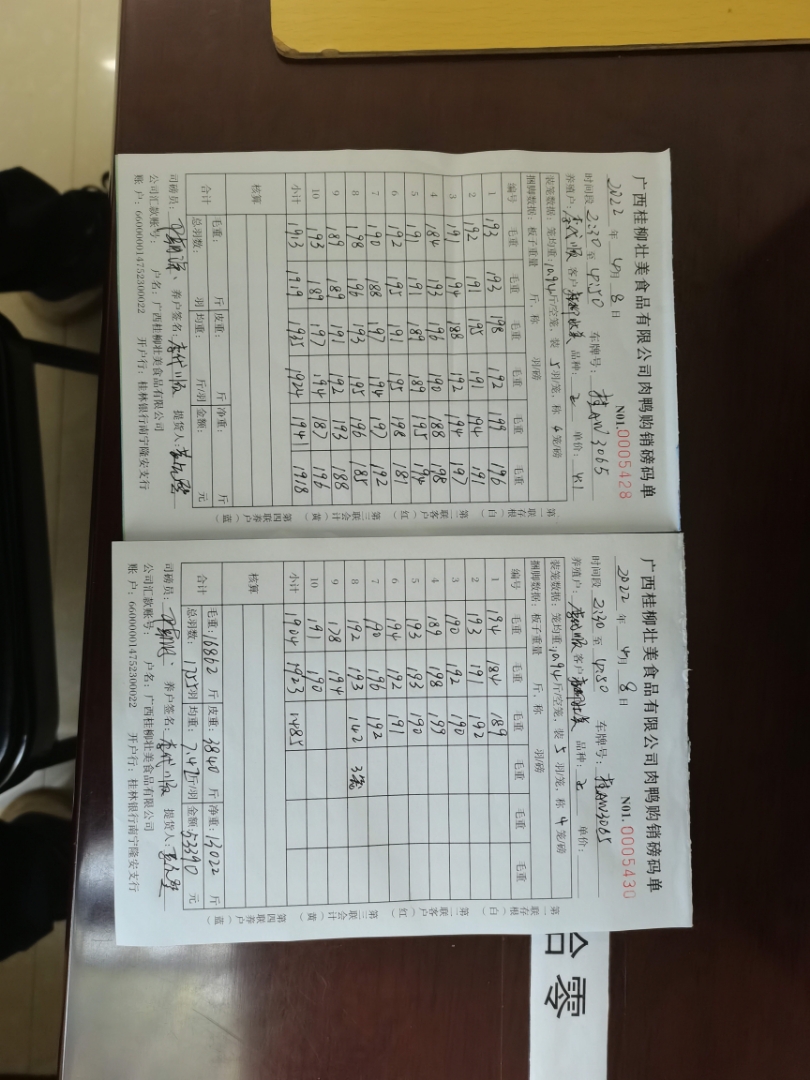 广西桂柳壮美食品有限公司肉鸭购销磅码单
2022 年 4月 8 日 N01.0005428
时间段 2:30 至 4:50 车牌号: 桂AW3065
养殖户: 客户 品种: 2 单价: 4.1
装笼数据: 笼均重:10.94斤/空笼, 装 5 羽/笼, 称 4 笼/磅
捆脚数据: 板子重量 斤, 称 羽/磅
编号 毛重 毛重 毛重 毛重 毛重 毛重
1 193 193 198 192 199 196
2 192 191 195 191 194 191
3 191 194 188 192 194 197
4 184 193 196 190 188 198
5 191 191 189 189 195 194
6 192 195 191 195 198 181
7 190 188 197 194 197 192
8 198 196 193 195 196 185
9 189 189 191 192 193 188
10 193 189 197 194 187 196
小计 1913 1919 1935 1924 1941 1918
核算
合计 毛重: 斤 皮重: 斤 净重: 斤
总羽数: 羽 均重: 斤/羽 金额: 元
司磅员: 养户签名: 李代顺 提货人:
公司汇款账号: 户名: 广西桂柳壮美食品有限公司
账 户: 660000014752300022 开户行: 桂林银行南宁隆安支行
第一联存根(白) 第二联客户(红) 第三联会计(黄) 第四联养户(蓝)
广西桂柳壮美食品有限公司肉鸭购销磅码单
2022 年 4月 8 日 N01.0005430
时间段 2:30 至 4:50 车牌号: 桂AW3065
养殖户: 客户 品种: 2 单价:
装笼数据: 笼均重:10.94斤/空笼, 装 5 羽/笼, 称 4 笼/磅
捆脚数据: 板子重量 斤, 称 羽/磅
编号 毛重 毛重 毛重 毛重 毛重 毛重
1 194 184 189
2 193 191 192
3 190 192 190
4 189 198 199
5 193 193 190
6 194 192 191
7 190 196 192
8 192 193 142 3笼
9 178 194
10 191 190
小计 1904 1923 1485
核算
合计 毛重: 16862 斤 皮重: 3840 斤 净重: 13022 斤
总羽数: 1755羽 均重: 7.42斤/羽 金额: 53390 元
司磅员: 养户签名: 李代顺 提货人:
公司汇款账号: 户名: 广西桂柳壮美食品有限公司
账 户: 660000014752300022 开户行: 桂林银行南宁隆安支行
第一联存根(白) 第二联客户(红) 第三联会计(黄) 第四联养户(蓝)
零